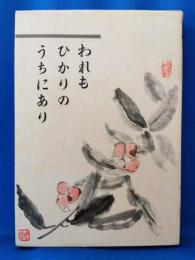 われも
ひかりの
うちにあり